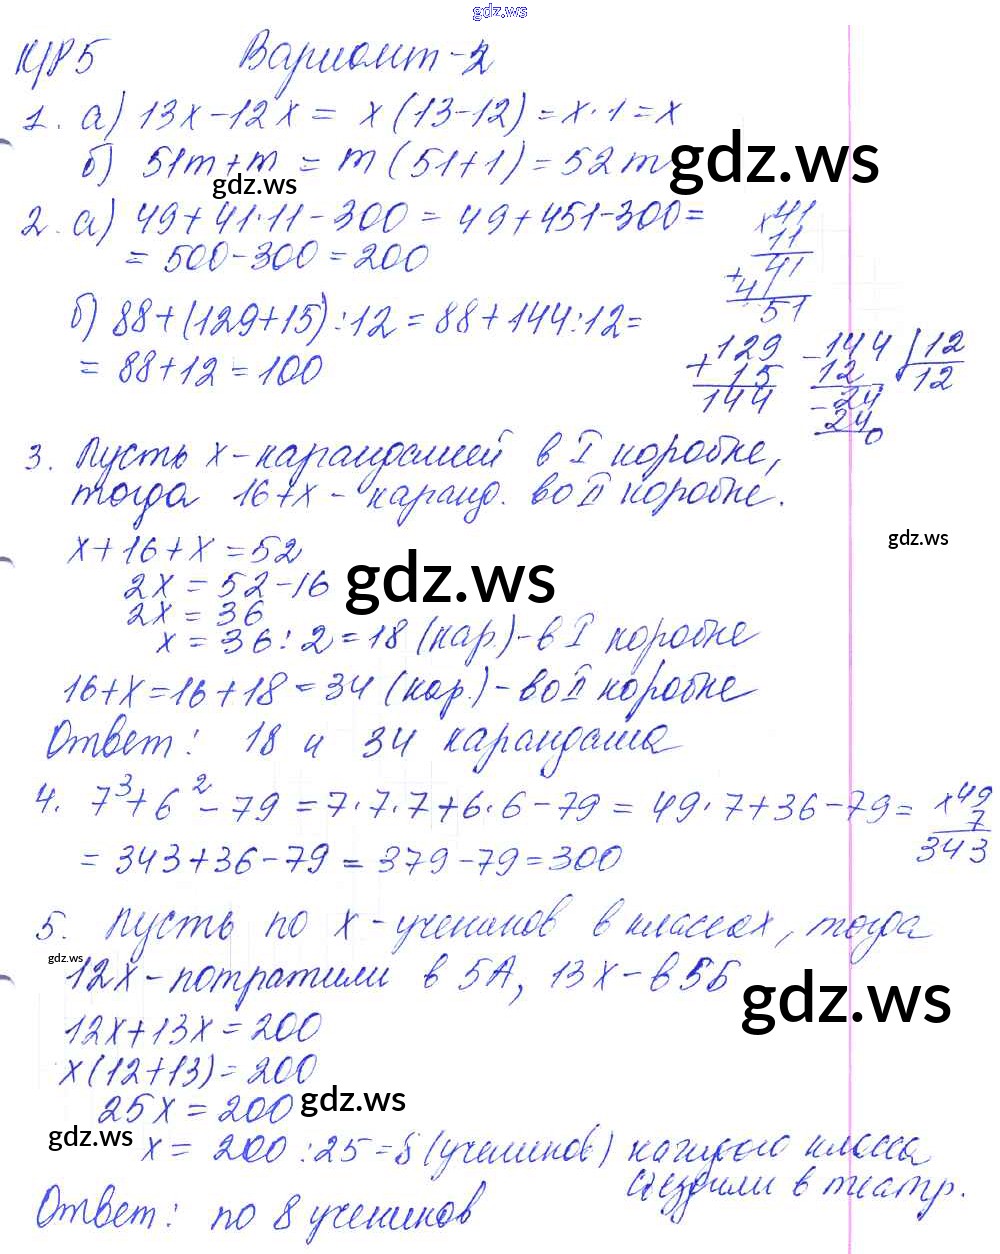 gdz.ws
К/Р 5 Вариант-2
1. а) 13x-12x = x(13-12) = x·1 = x
б) 51m+m = m(51+1) = 52m
gdz.ws
gdz.ws
2. а) 49+41·11-300 = 49+451-300=
= 500-300 = 200
×41
11
+41
41
451
б) 88+(129+15):12 = 88+144:12=
= 88+12 = 100
+129
15
144
-144 | 12
12 12
-24
24
0
3. Пусть x-карандашей в I коробке,
тогда 16+x - каранд. во II коробке.
gdz.ws
x+16+x = 52
2x = 52-16
gdz.ws
2x = 36
x = 36:2 = 18 (кар.)-в I коробке
16+x = 16+18 = 34 (кар.)-во II коробке
Ответ: 18 и 34 карандаша
4. 7³+6²-79 = 7·7·7+6·6-79 = 49·7+36-79=
= 343+36-79 = 379-79 = 300
×49
7
343
5. Пусть по x-учеников в классах, тогда
gdz.ws
12x-потратили в 5А, 13x-в 5Б
gdz.ws
12x+13x = 200
x(12+13) = 200
25x = 200
gdz.ws
gdz.ws
x = 200:25 = 8 (учеников) каждого класса
съездили в театр.
Ответ: по 8 учеников